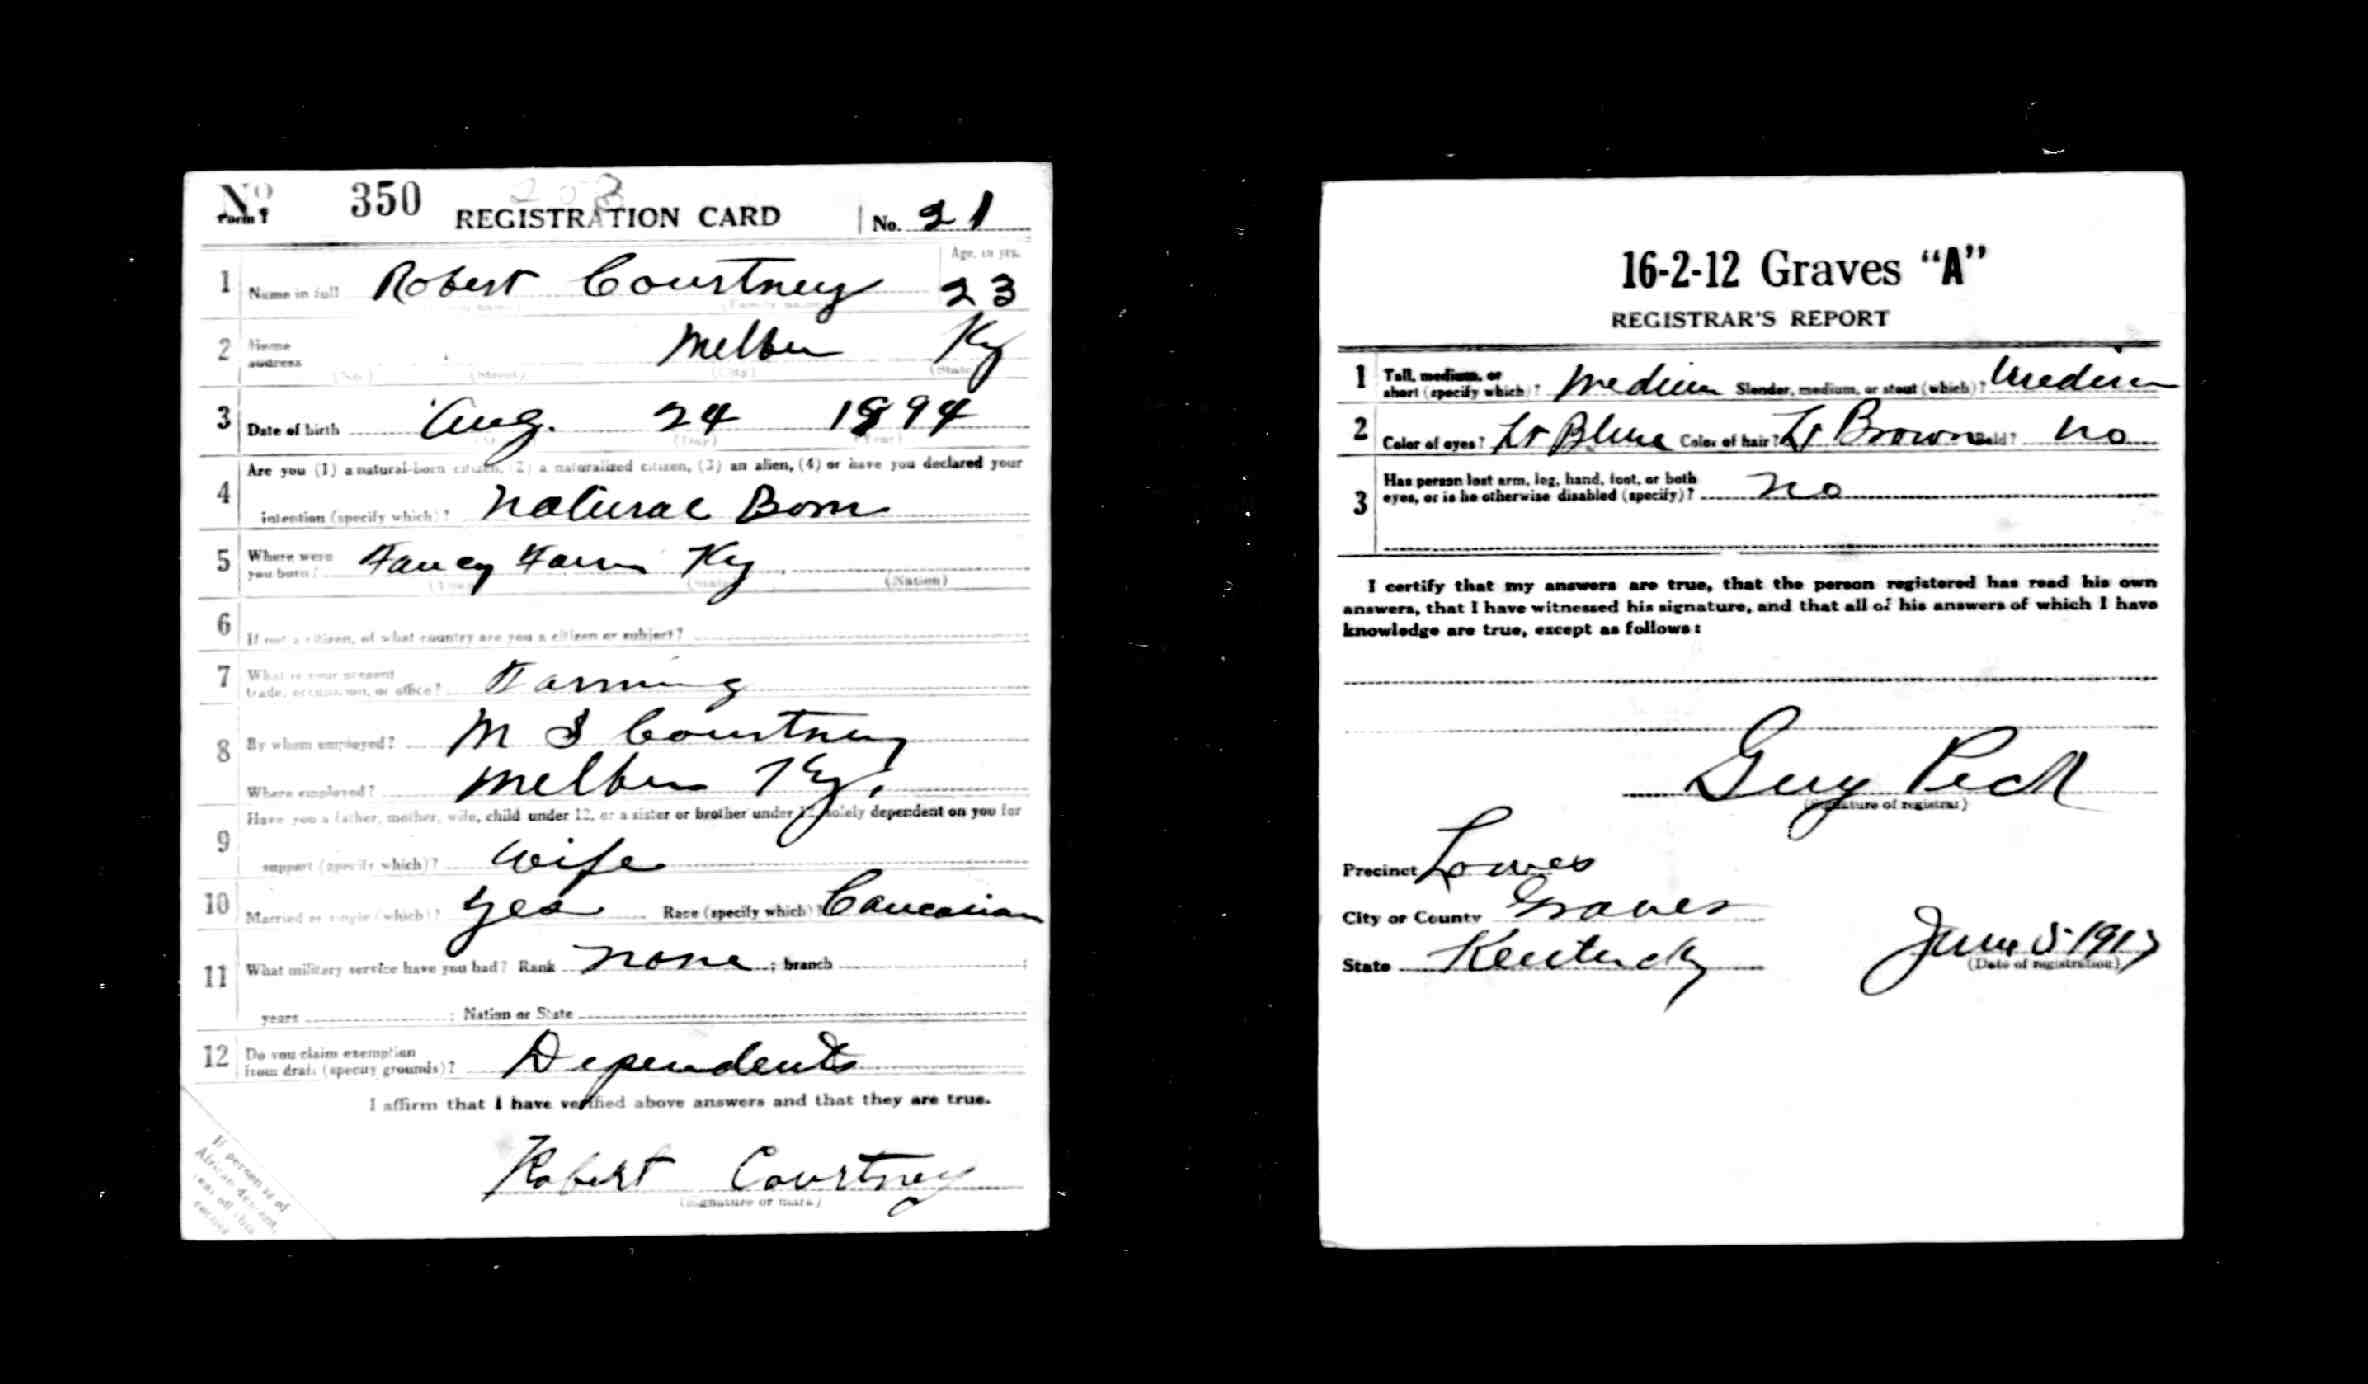 No 350 203
Form 1 REGISTRATION CARD No. 21
1 Name in full Robert Courtney Age, in yrs. 23
(Family name)
2 Home address Melber Ky
(No.) (Street) (City) (State)
3 Date of birth Aug. 24 1894
(Day) (Year)
4 Are you (1) a natural-born citizen, (2) a naturalized citizen, (3) an alien, (4) or have you declared your
intention (specify which)? Natural Born
5 Where were you born? Fancy Farm Ky
(Town) (State) (Nation)
6 If not a citizen, of what country are you a citizen or subject?
7 What is your present
trade, occupation, or office? Farming
8 By whom employed? M S Courtney
Where employed? Melber Ky.
9 Have you a father, mother, wife, child under 12, or a sister or brother under 12, solely dependent on you for
support (specify which)? Wife
10 Married or single (which)? yes Race (specify which)? Caucasian
11 What military service have you had? Rank none ; branch ;
years ; Nation or State
12 Do you claim exemption
from draft (specify grounds)? Dependents
I affirm that I have verified above answers and that they are true.
Robert Courtney
(Signature or mark)
If person is of
African descent,
tear off this
corner
16-2-12 Graves “A”
REGISTRAR'S REPORT
1 Tall, medium, or
short (specify which)? Medium Slender, medium, or stout (which)? Medium
2 Color of eyes? Lt Blue Color of hair? Lt Brown Bald? no
3 Has person lost arm, leg, hand, foot, or both
eyes, or is he otherwise disabled (specify)? no
I certify that my answers are true, that the person registered has read his own
answers, that I have witnessed his signature, and that all of his answers of which I have
knowledge are true, except as follows:
Guy Peck
(Signature of registrar)
Precinct Lowes
City or County Graves
State Kentucky June 5-1917
(Date of registration)